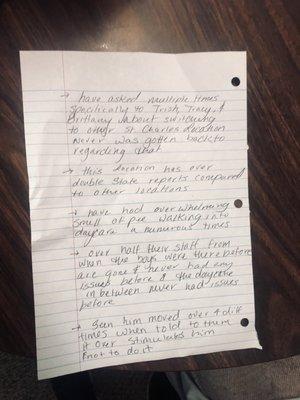 → have asked multiple times
specifically to Trish, Tracy, &
Brittany about switching
to other St Charles location
never was gotten back to
regarding that
→ this location has over
double state reports compared
to other locations
→ have had overwhelming
smell of pee walking into
daycare a numerous times
→ over half their staff from
when the boys were there before
are gone & never had any
issues before & the daycare
in between never had issues
before
→ seen him moved over 4 diff
times when told to them
it over stimulates him
& not to do it